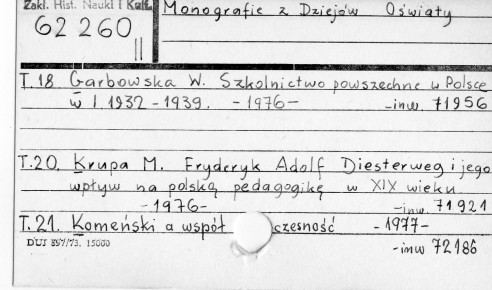 Zakł. Hist. Nauki i Kult.
Monografie z Dziejów Oświaty
62 260
II
T.18 Garbowska W. Szkolnictwo powszechne w Polsce
w l. 1932-1939. -1976- -inw. 71956
T.20. Krupa M. Fryderyk Adolf Diesterweg i jego
wpływ na polską pedagogikę w XIX wieku
-1976- -inw. 71921
T.21. Komeński a współ czesność -1977-
-inw 72186
DUJ 897/73. 15000